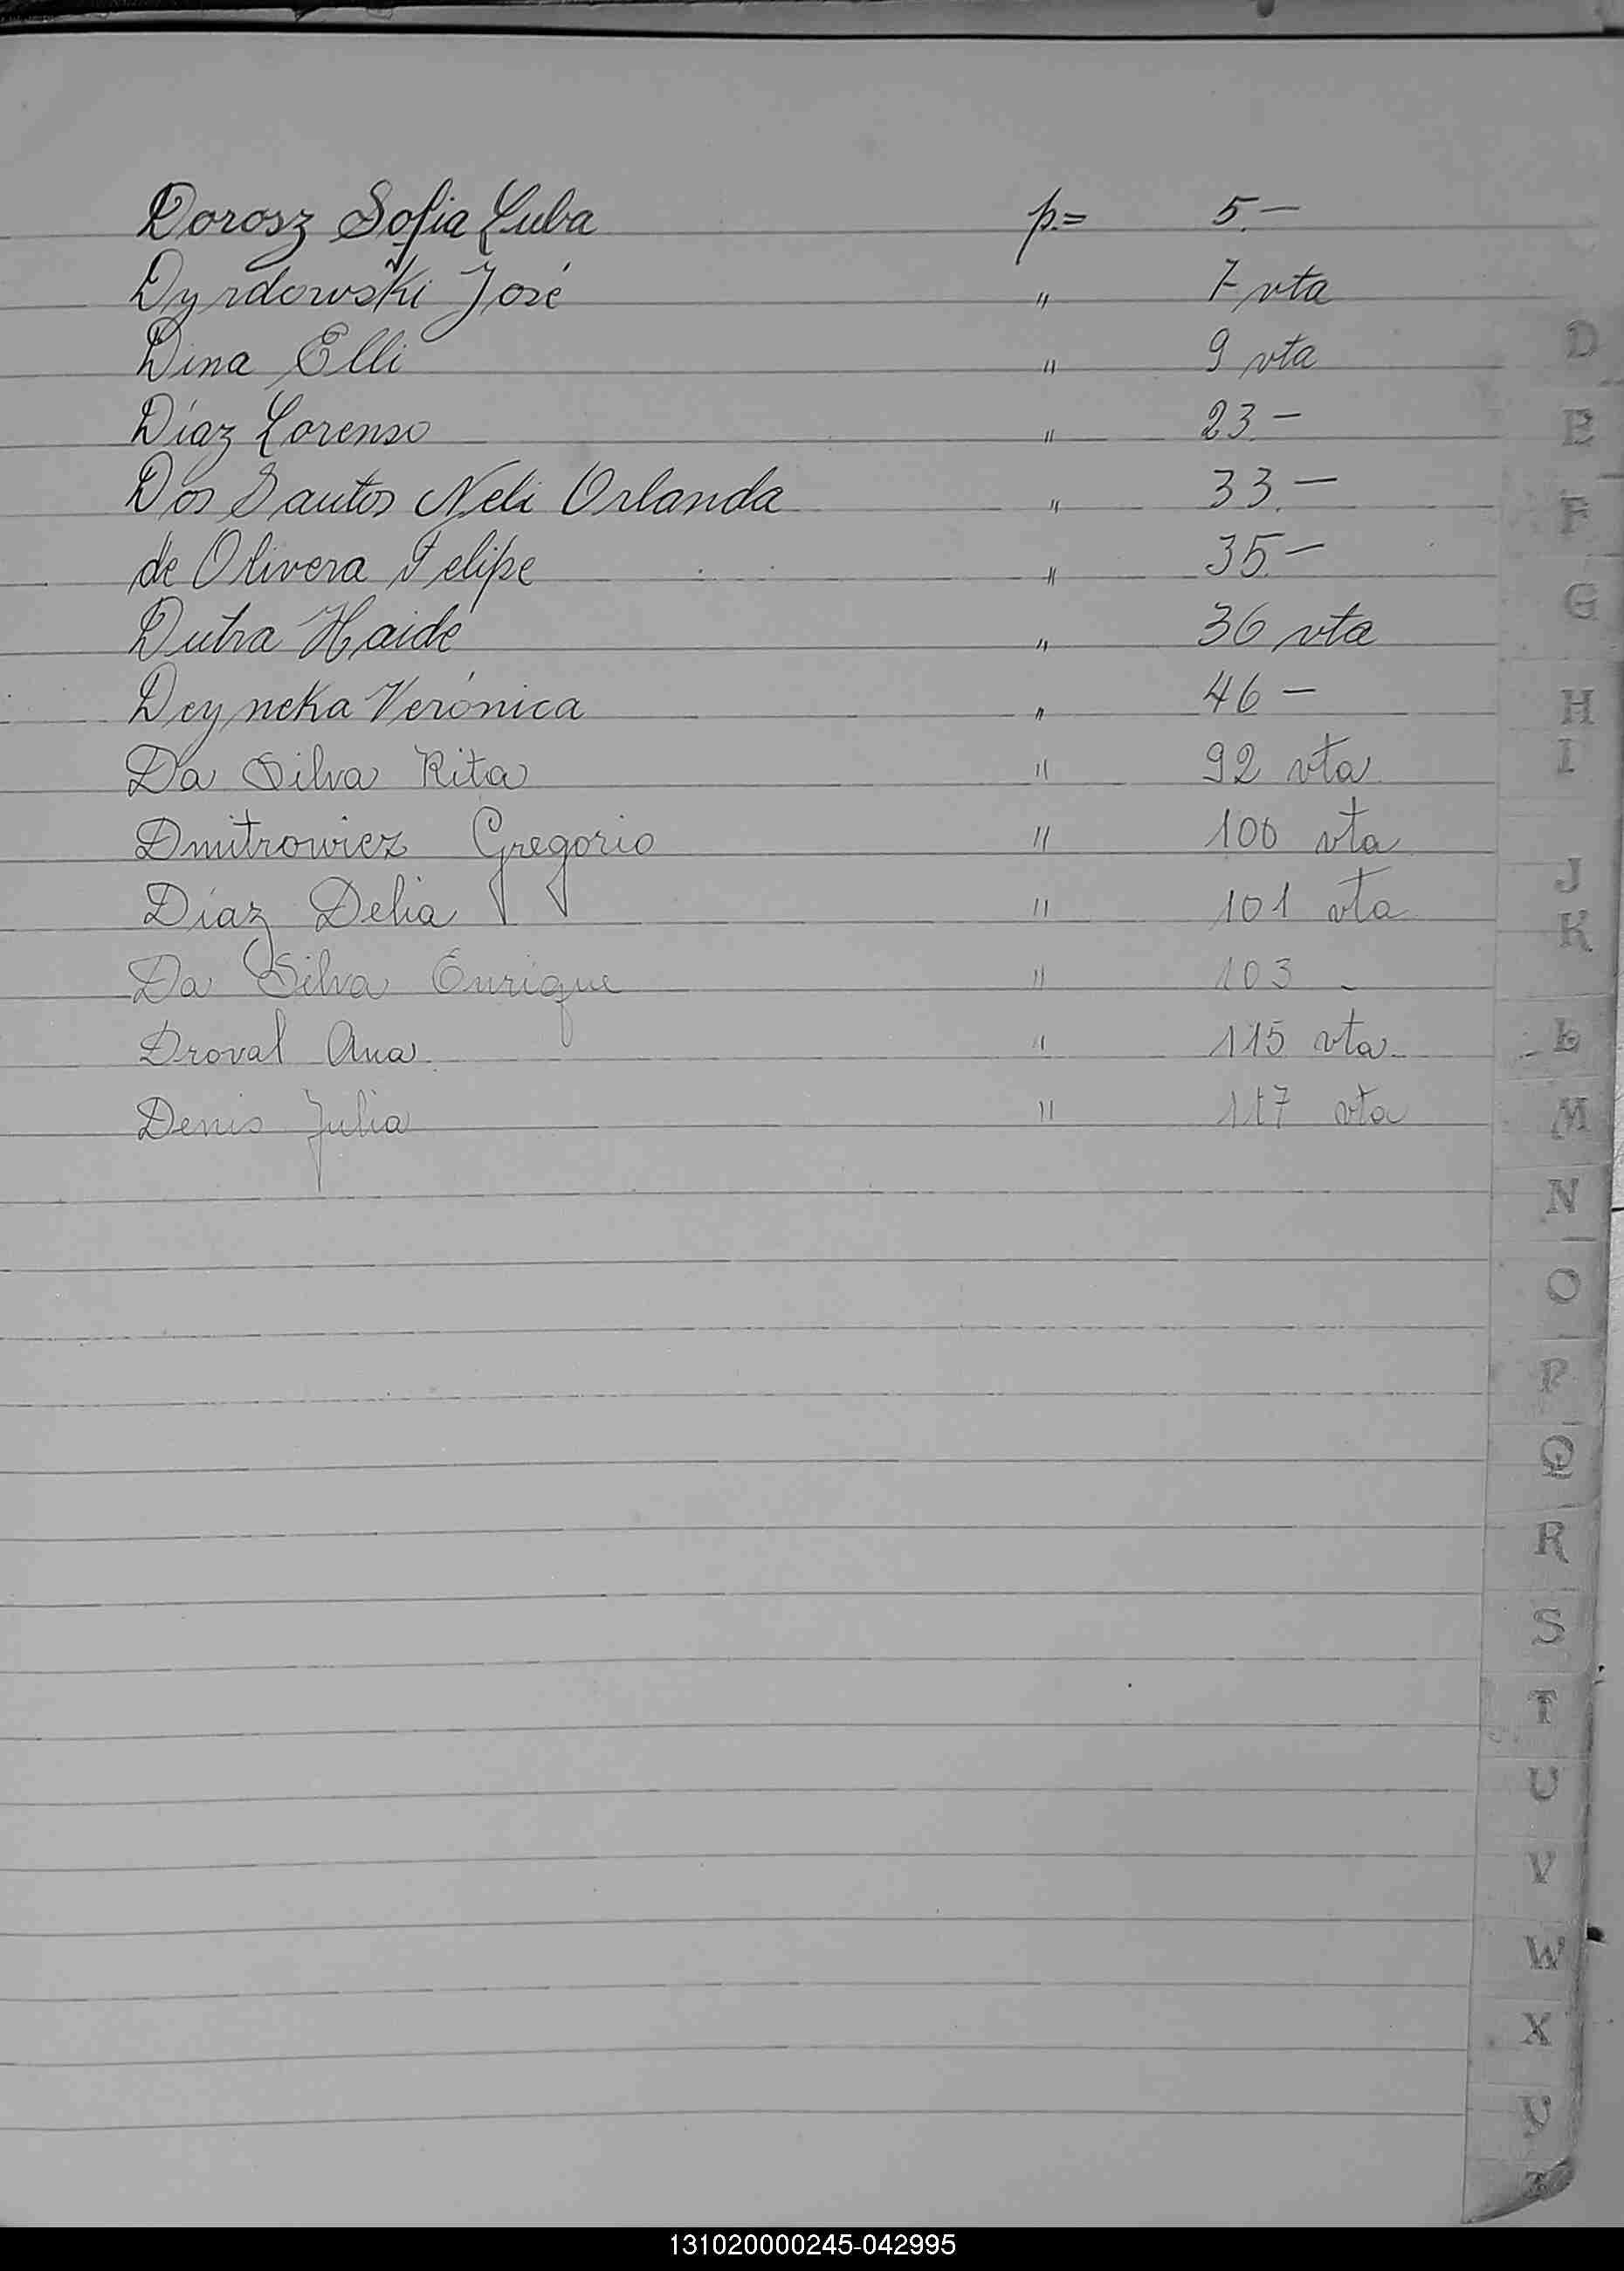 Dorosz Sofia Luba p.= 5.—
Dyrdowski José " 7 vta
Dina Elli " 9 vta
Díaz Lorenso " 23.—
Dos Santos Neli Orlanda " 33.—
de Olivera Felipe " 35.—
Dutra Haidé " 36 vta
Deyneka Verónica " 46 —
Da Silva Rita " 92 vta
Dmitrowicz Gregorio " 100 vta
Díaz Delia " 101 vta
Da Silva Enrique " 103 -
Droval Ana " 115 vta
Denis Julia " 117 vta
D
E
F
G
H
I
J
K
L
M
N
O
P
Q
R
S
T
U
V
W
X
131020000245-042995